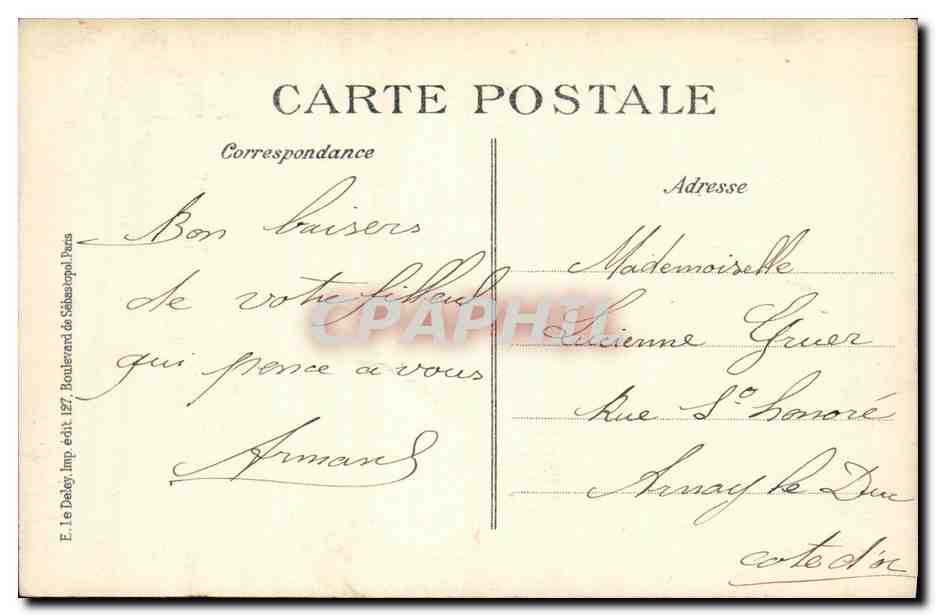 CARTE POSTALE
Correspondance
Bon baisers
de votre filleul
qui pence a vous
Armand
Adresse
Mademoiselle
Lucienne Gruer
Rue St honoré
Arnay le Duc
cote d'or
E. le Deley, Imp. édit. 127, Boulevard de Sébastopol. Paris
CPAPHIL